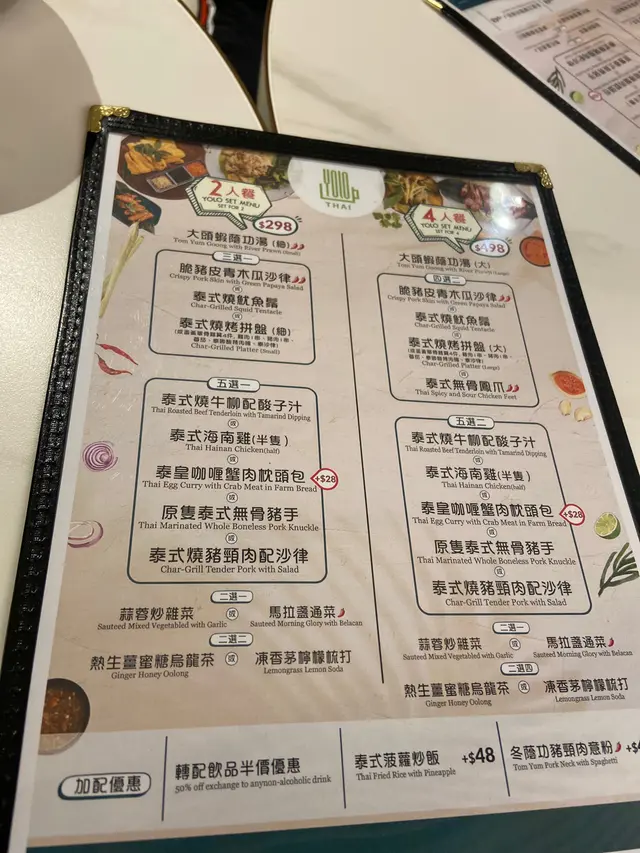 YOLO
THAI
2人餐
YOLO SET MENU
SET FOR 2
$298
大頭蝦蔭功湯(細)
Tom Yum Goong with River Prawn (Small)
三選一
脆豬皮青木瓜沙律
Crispy Pork Skin with Green Papaya Salad
或
泰式燒魷魚鬚
Char-Grilled Squid Tentacle
或
泰式燒烤拼盤(細)
Char-Grilled Platter (Small)
五選一
泰式燒牛柳配酸子汁
Thai Roasted Beef Tenderloin with Tamarind Dipping
或
泰式海南雞(半隻)
Thai Hainan Chicken(half)
或
泰皇咖喱蟹肉枕頭包
+$28
Thai Egg Curry with Crab Meat in Farm Bread
或
原隻泰式無骨豬手
Thai Marinated Whole Boneless Pork Knuckle
或
泰式燒豬頸肉配沙律
Char-Grill Tender Pork with Salad
二選一
蒜蓉炒雜菜 或 馬拉盞通菜
Sauteed Mixed Vegetabled with Garlic Sauteed Morning Glory with Belacan
二選二
熱生薑蜜糖烏龍茶 或 凍香茅檸檬梳打
Ginger Honey Oolong Lemongrass Lemon Soda
4人餐
YOLO SET MENU
SET FOR 4
$498
大頭蝦蔭功湯(大)
Tom Yum Goong with River Prawn (Large)
四選二
脆豬皮青木瓜沙律
Crispy Pork Skin with Green Papaya Salad
或
泰式燒魷魚鬚
Char-Grilled Squid Tentacle
或
泰式燒烤拼盤(大)
Char-Grilled Platter (Large)
或
泰式無骨鳳爪
Thai Spicy and Sour Chicken Feet
五選二
泰式燒牛柳配酸子汁
Thai Roasted Beef Tenderloin with Tamarind Dipping
或
泰式海南雞(半隻)
Thai Hainan Chicken(half)
或
泰皇咖喱蟹肉枕頭包
+$28
Thai Egg Curry with Crab Meat in Farm Bread
或
原隻泰式無骨豬手
Thai Marinated Whole Boneless Pork Knuckle
或
泰式燒豬頸肉配沙律
Char-Grill Tender Pork with Salad
二選一
蒜蓉炒雜菜 或 馬拉盞通菜
Sauteed Mixed Vegetabled with Garlic Sauteed Morning Glory with Belacan
二選四
熱生薑蜜糖烏龍茶 或 凍香茅檸檬梳打
Ginger Honey Oolong Lemongrass Lemon Soda
加配優惠
轉配飲品半價優惠
50% off exchange to anynon-alcoholic drink
泰式菠蘿炒飯 +$48
Thai Fried Rice with Pineapple
冬蔭功豬頸肉意粉
Tom Yum Pork Neck with Spaghetti